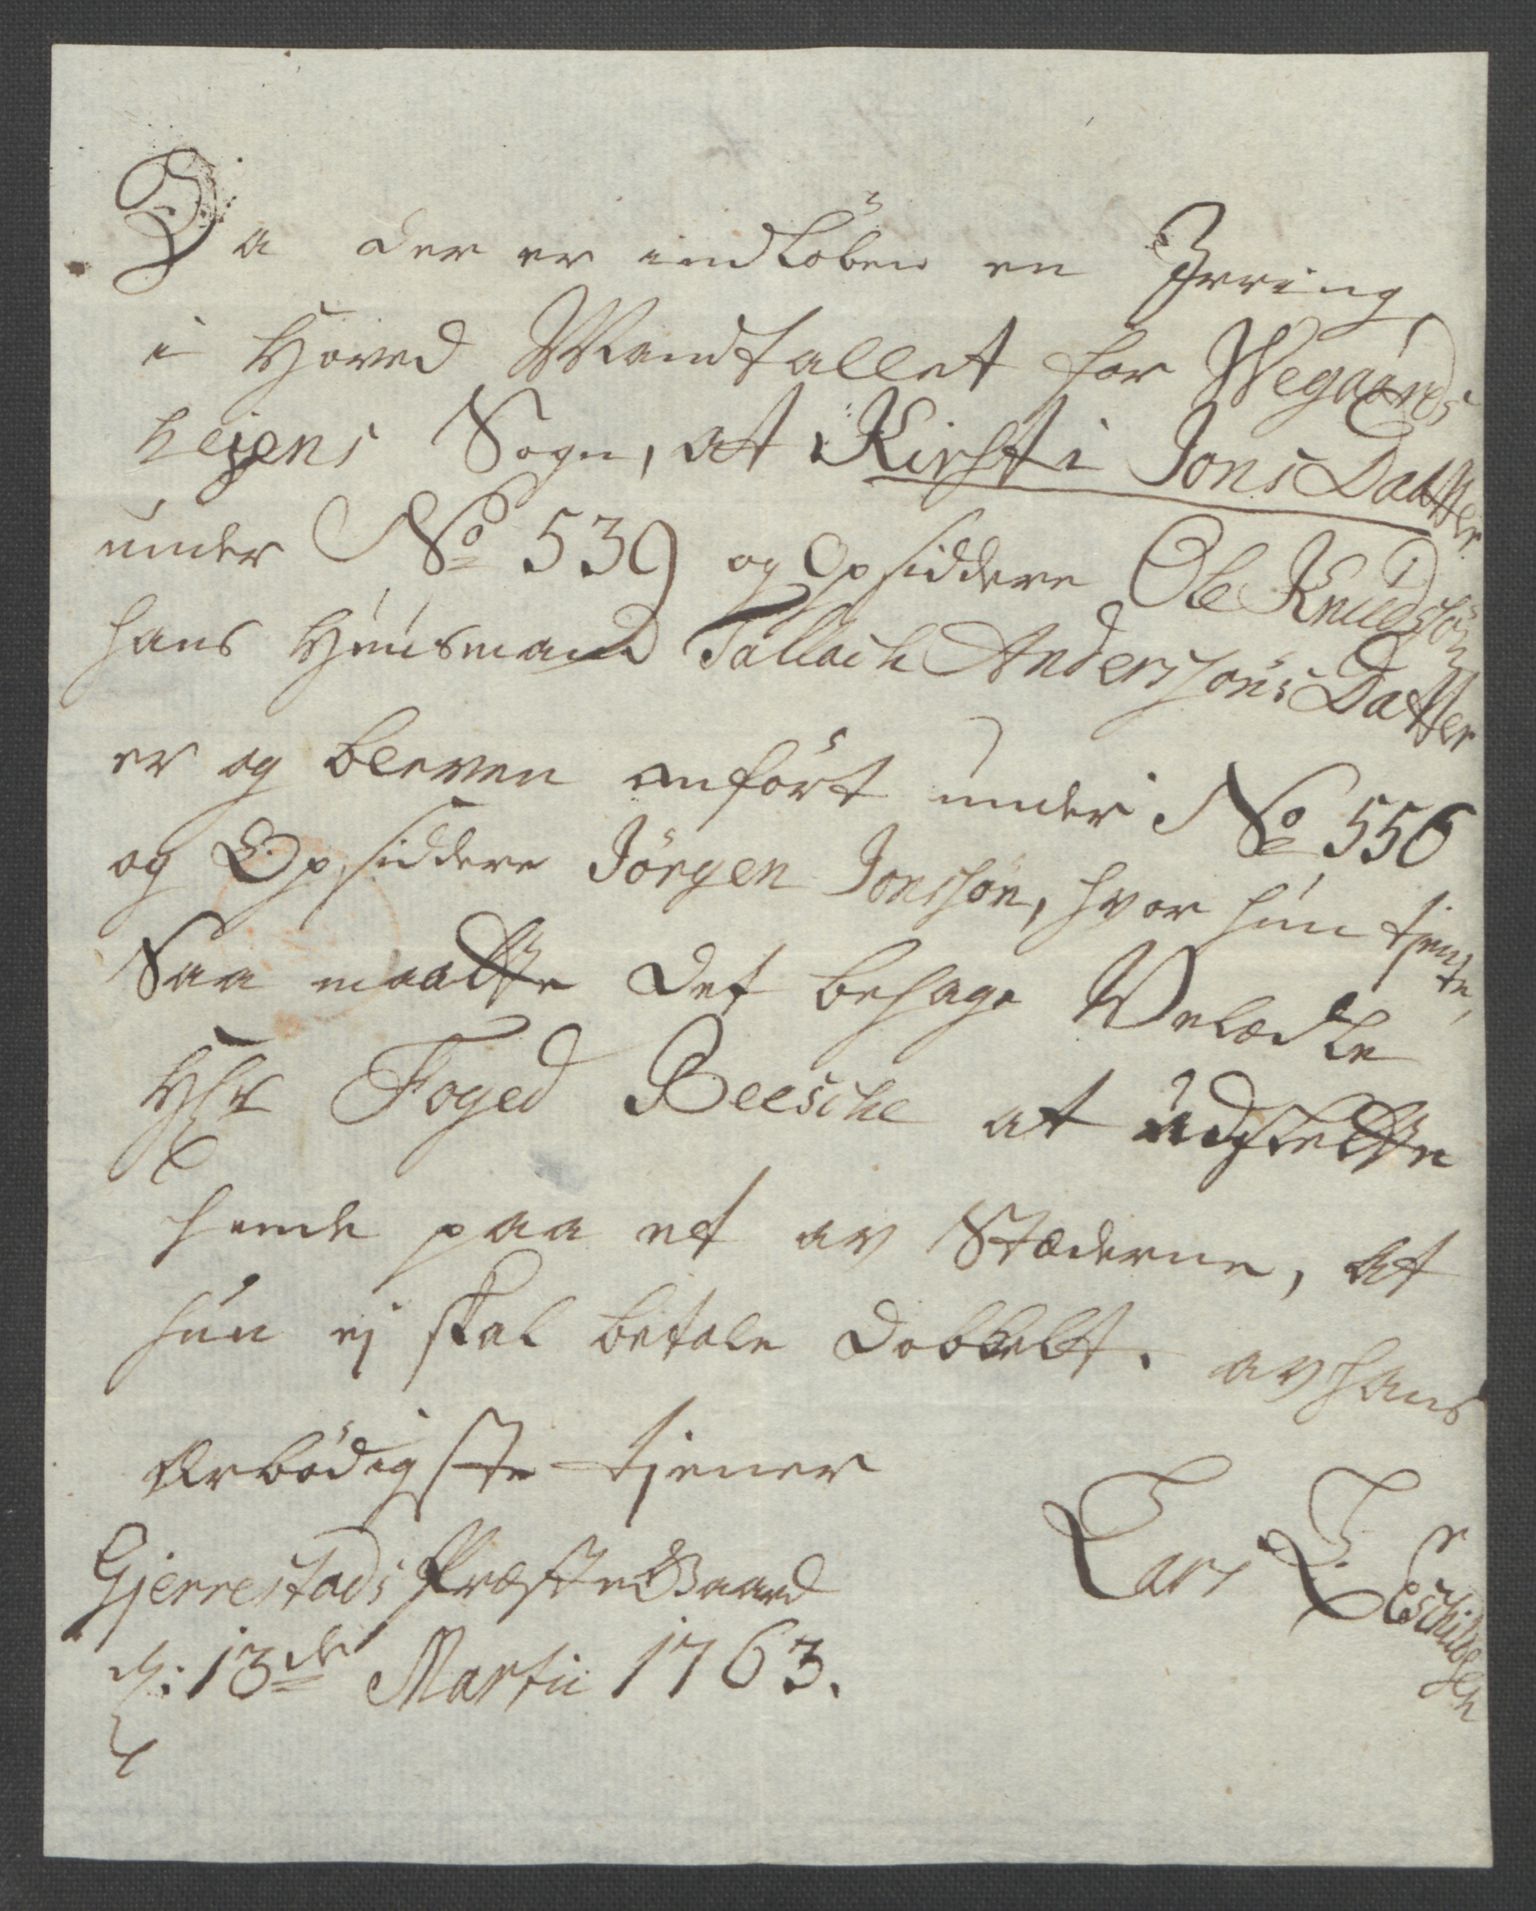 Da der er indløben en Irring
i Hoved Mandtallet for Wegaards
heiens Sogn, at Kirsti Jons Datter
under No 539 og Opsiddere Ole Knudssøn
hans Huusmand Tallach Anderssøns Datter
er og bleven anført under No 556
og Opsiddere Jørgen Jonssøn, hvor hun tjente,
Saa maatte det behage Velædle
Hr Foged Beesche at udslette
hende paa et av Stæderne, at
hun ej skal betale dobbelt. av hans
ærbødigste tjener
Gjerrestads Præste Gaard
d: 13de Martii 1763.
Lars Eschildsen